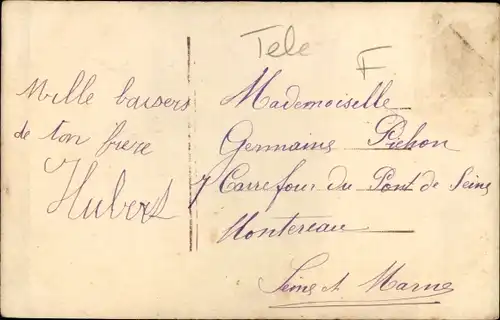 Tele
F
Mille baisers
de ton frere
Hubert
Mademoiselle
Germaine Pichon
7 Carrefour du Pont de Seine
Montereau
Seine et Marne